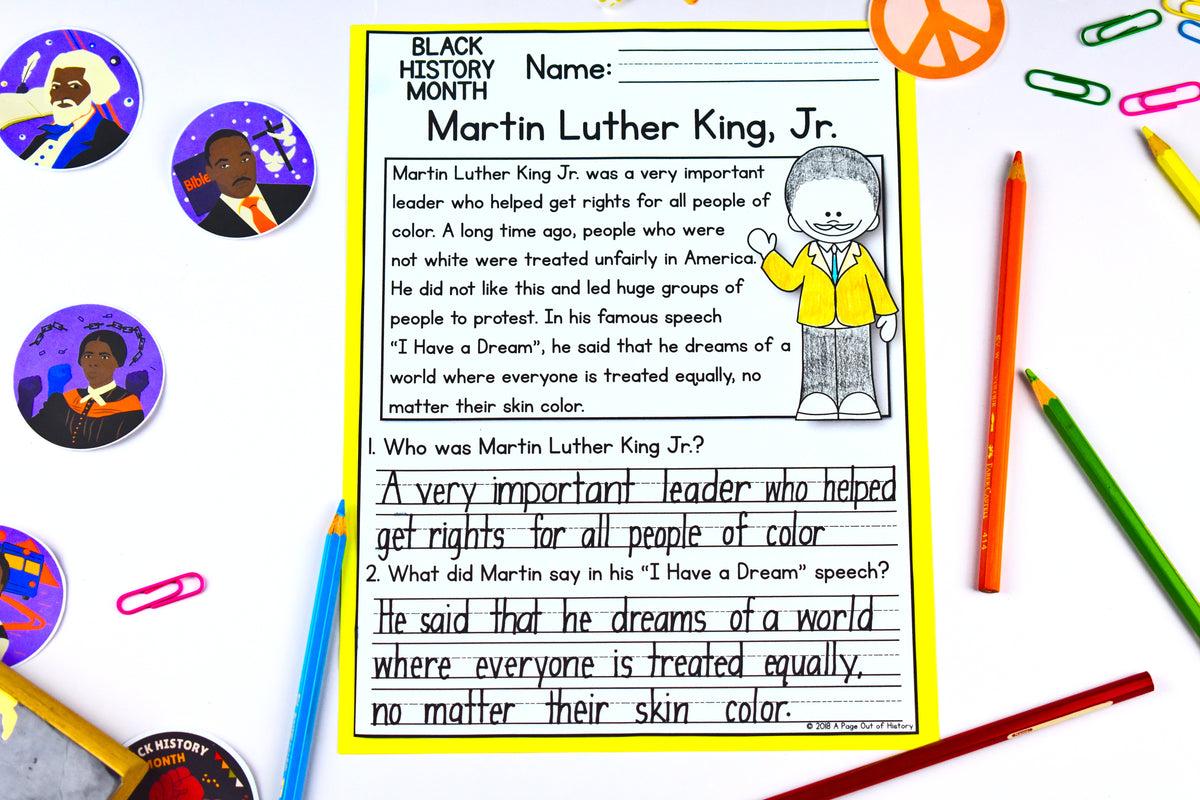 BLACK
HISTORY
MONTH
Name:
Martin Luther King, Jr.
Martin Luther King Jr. was a very important
leader who helped get rights for all people of
color. A long time ago, people who were
not white were treated unfairly in America.
He did not like this and led huge groups of
people to protest. In his famous speech
“I Have a Dream”, he said that he dreams of a
world where everyone is treated equally, no
matter their skin color.
1. Who was Martin Luther King Jr.?
A very important leader who helped
get rights for all people of color
2. What did Martin say in his “I Have a Dream” speech?
He said that he dreams of a world
where everyone is treated equally,
no matter their skin color.
© 2018 A Page Out of History
Bible
CK HISTORY
MONTH
FABER-CASTELL
414